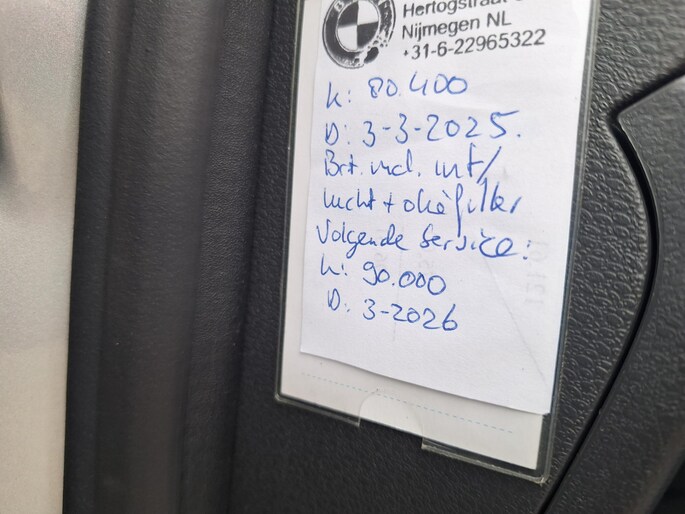 Hertogstraat
Nijmegen NL
+31-6-22965322
k: 80.400
D: 3-3-2025.
Brt. incl. int/
lucht + olie filter
Volgende Service:
k: 90.000
D: 3-2026